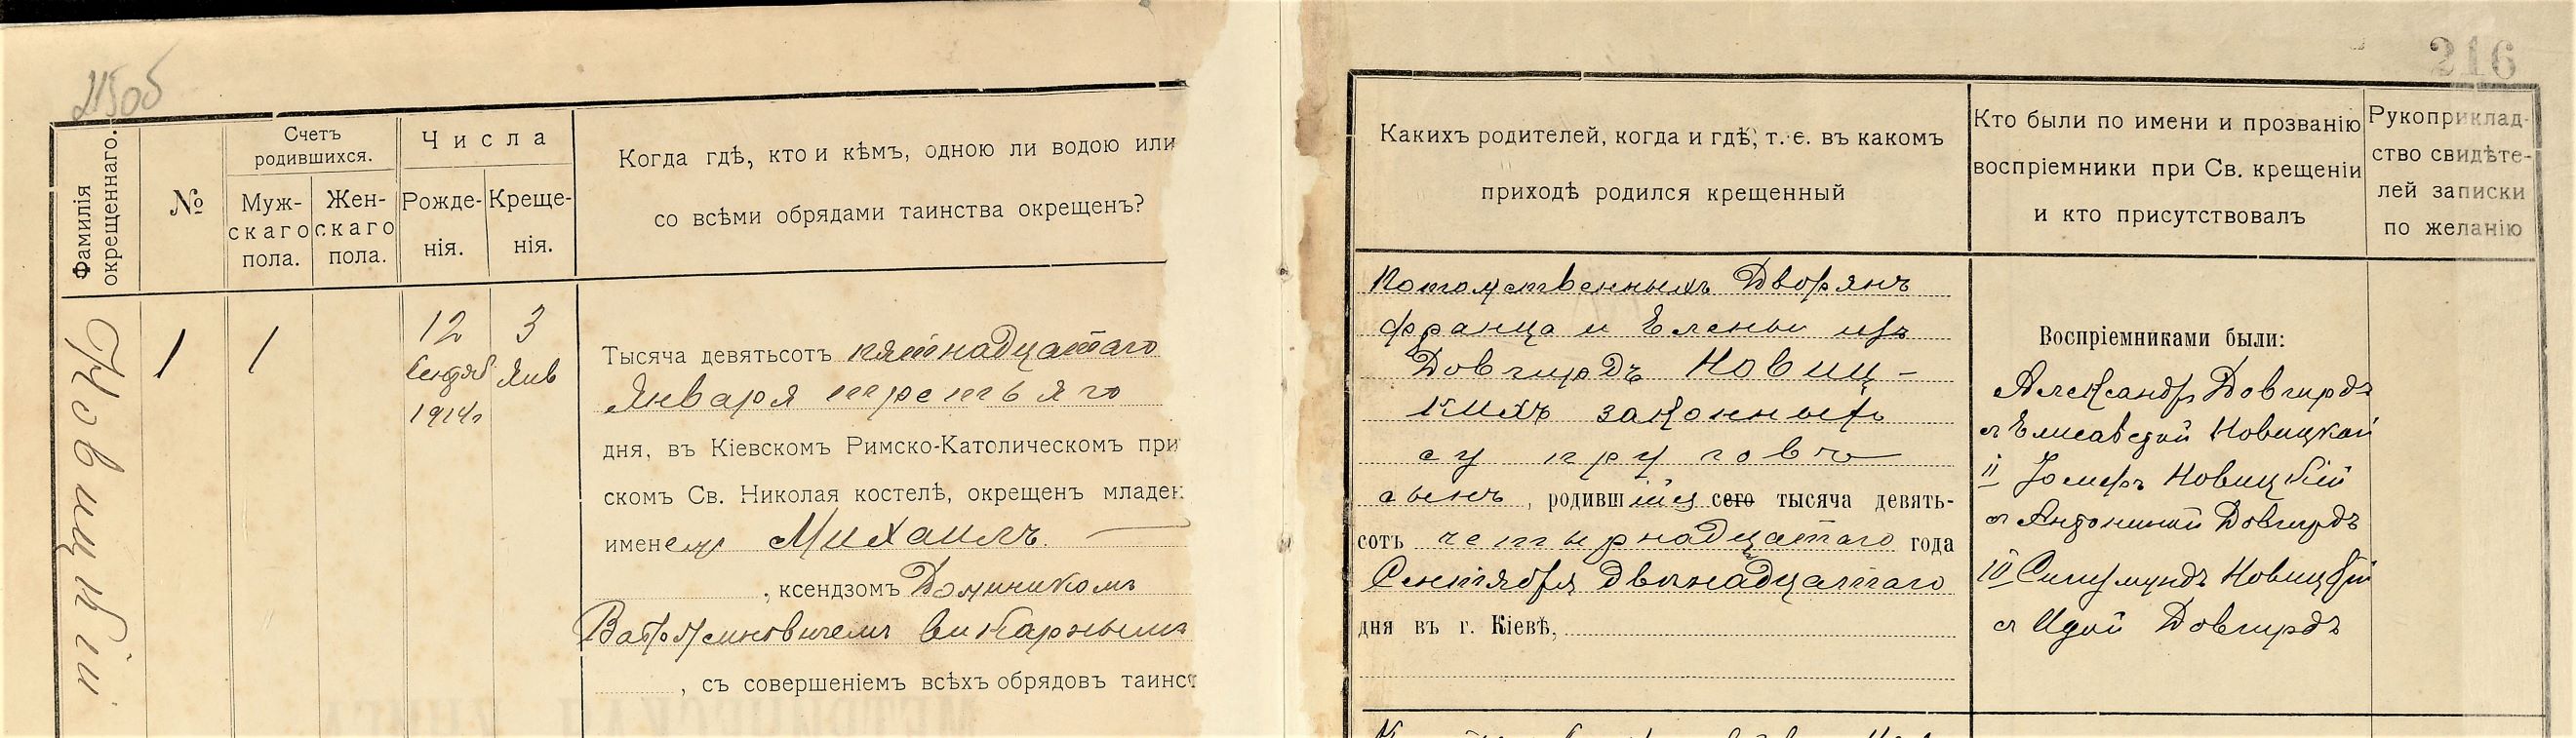 215об
216
Фамилія окрещеннаго.
№
Счетъ родившихся.
Муж-скаго пола.
Жен-скаго пола.
Числа
Рожде-нія.
Креще-нія.
Когда гдѣ, кто и кѣмъ, одною ли водою или
со всѣми обрядами таинства окрещенъ?
Новицкій
1
1
12
Сентяб
1914г
3
Янв
Тысяча девятьсотъ пятнадцатаго
Января третьяго
дня, въ Кіевскомъ Римско-Католическомъ при
скомъ Св. Николая костелѣ, окрещенъ младен
именемъ Михаилъ.
, ксендзомъ Доминикомъ
викарнымъ
, съ совершеніемъ всѣхъ обрядовъ таинст
Какихъ родителей, когда и гдѣ, т. е. въ какомъ
приходѣ родился крещенный
Потомственныхъ Дворянъ
Франца и Елены изъ
Довгирдъ Новиц-
кихъ законныхъ
супруговъ
сынъ, родившійся сего тысяча девять-
сотъ четырнадцатаго года
Сентября двѣнадцатаго
дня въ г. Кіевѣ,
Кто были по имени и прозванію
воспріемники при Св. крещеніи
и кто присутствовалъ
Воспріемниками были:
Александръ Довгирдъ
съ Елисаветой Новицкой
II Іосифъ Новицкій
съ Антониной Довгирдъ
III Сигизмундъ Новицкій
съ Идой Довгирдъ
Рукоприклад-
ство свидѣте-
лей записки
по желанію